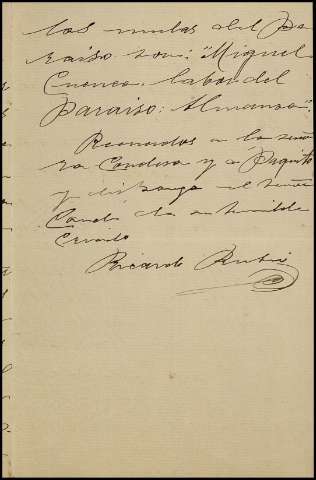 las mulas del Pa
raiso son: "Miguel
Cuenca, labor del
Paraiso: Almansa".
Recuerdos a la seño
ra Condesa y a Paquito
y disponga el señor
Conde de su humilde
criado
Ricardo Rubio